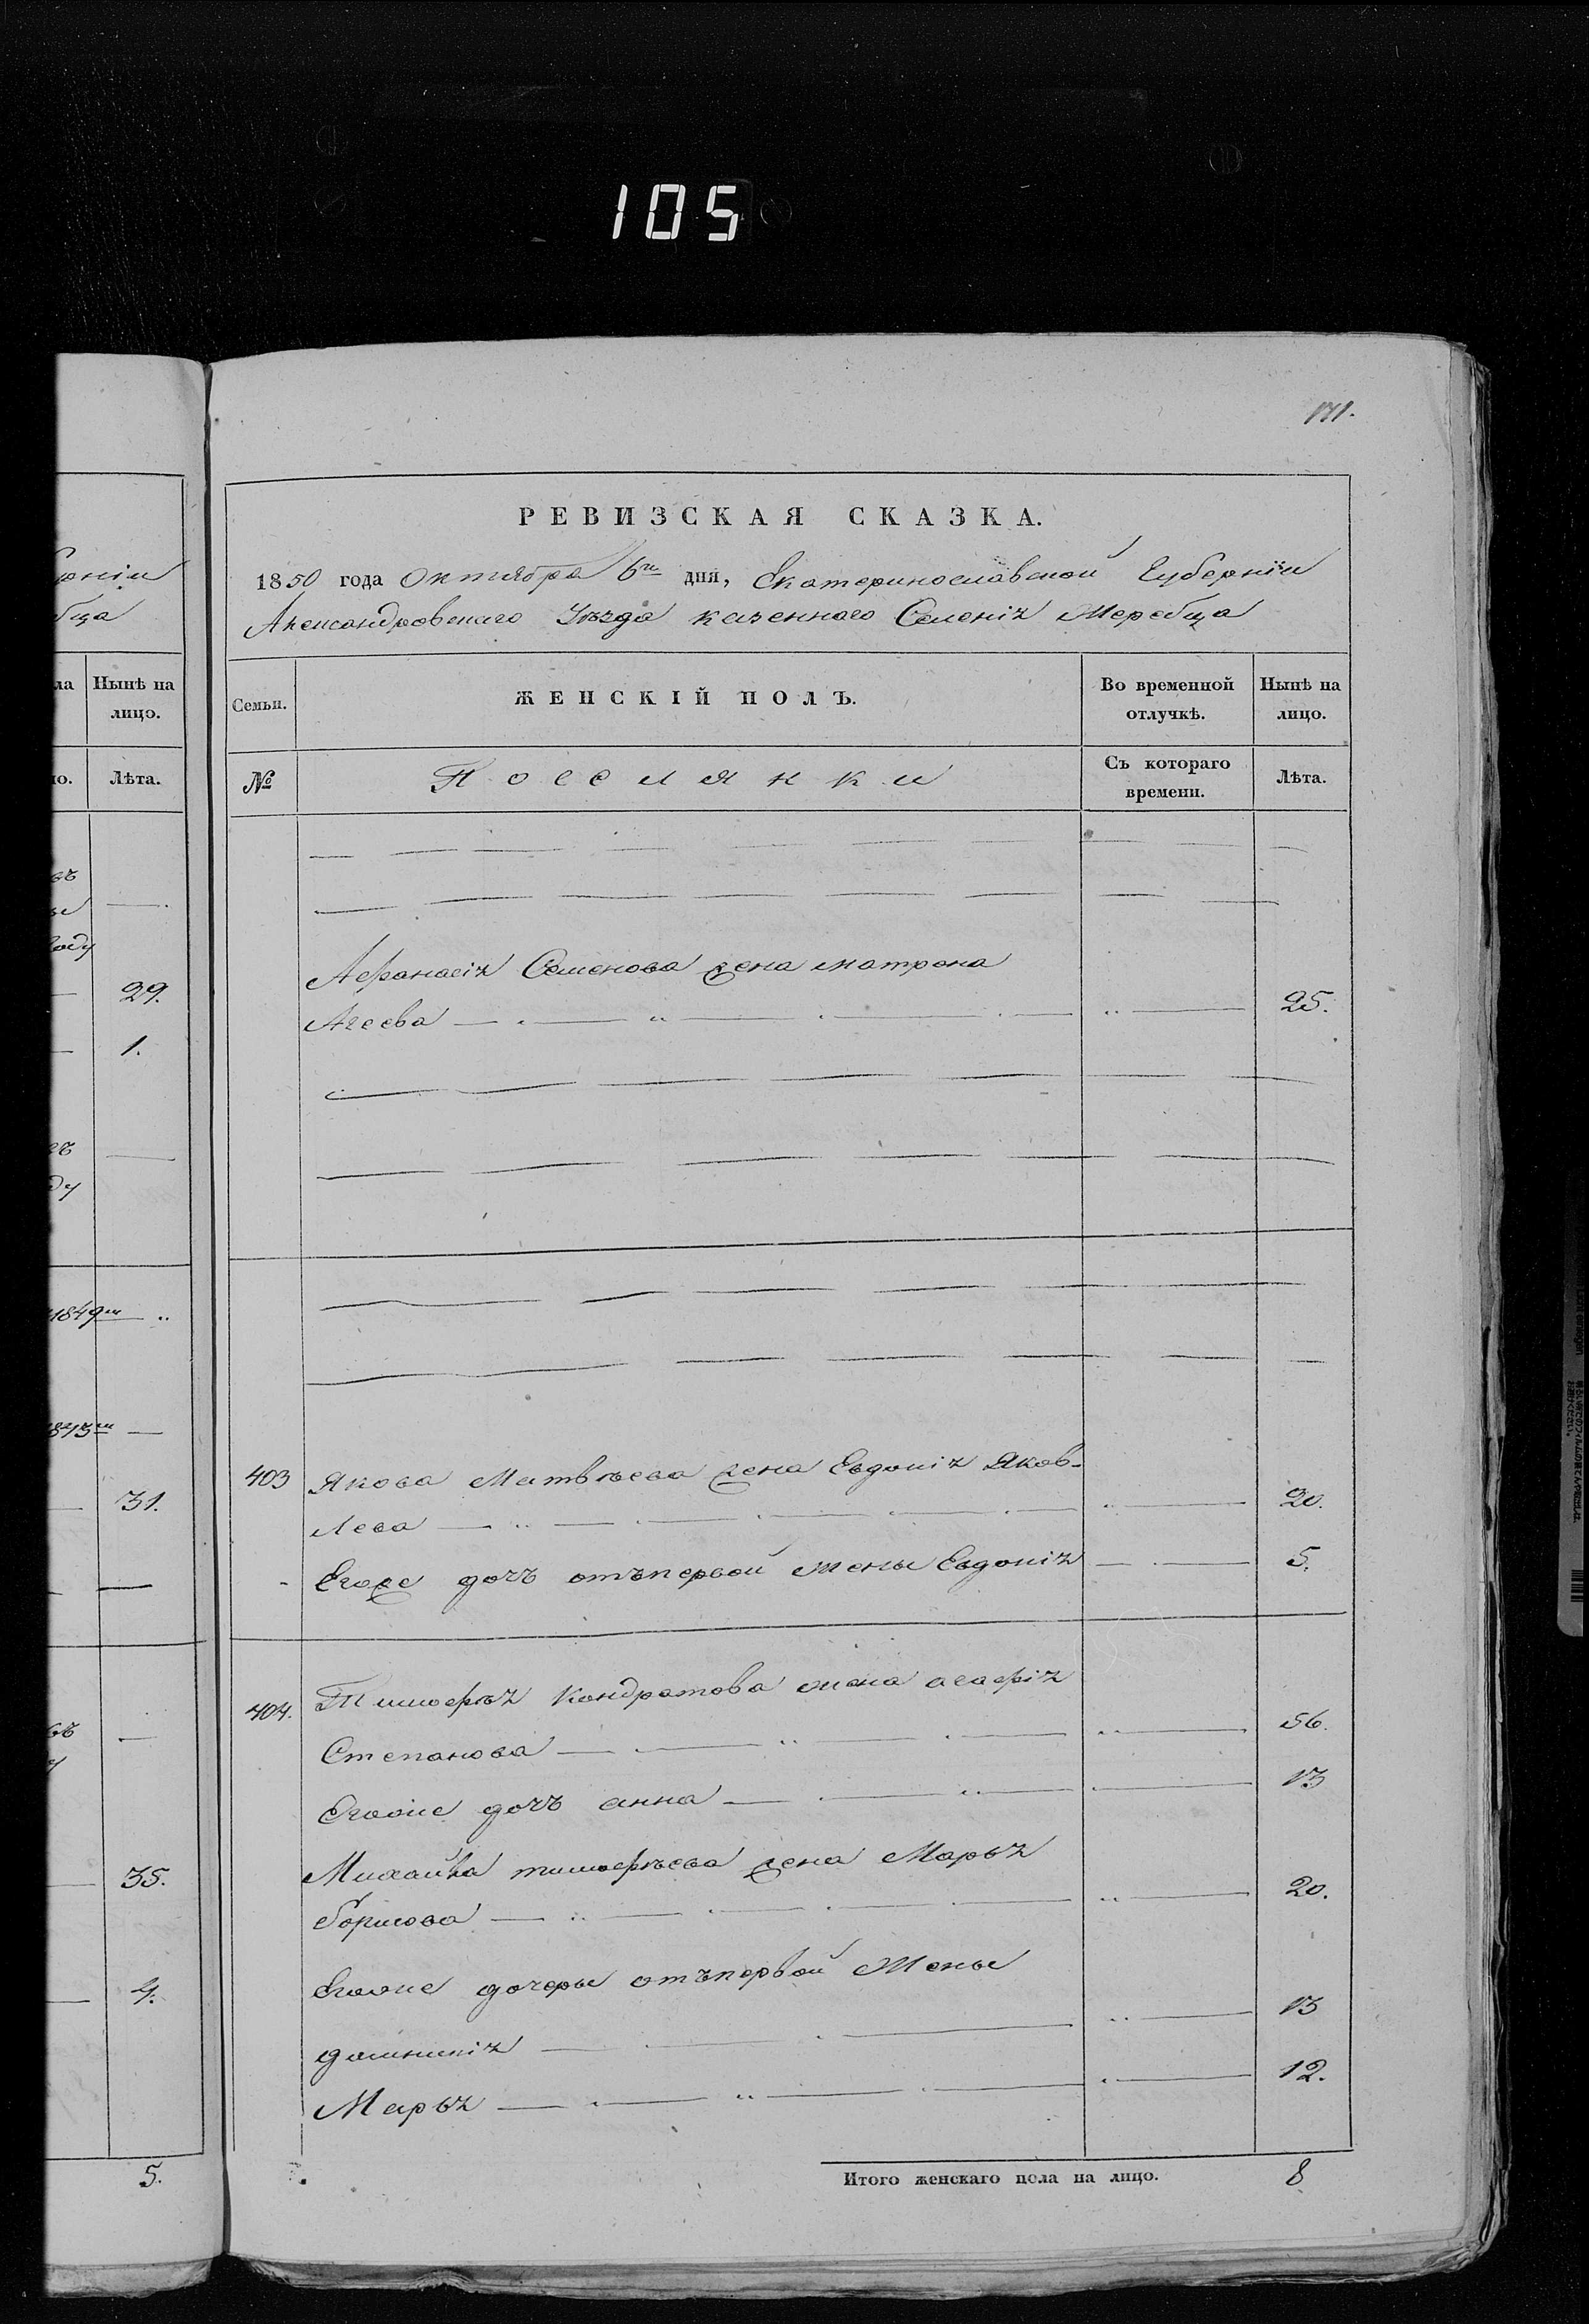 105
171.
РЕВИЗСКАЯ СКАЗКА.
1850 года Октября 6го дня, Екатеринославской Губерніи
Александровскаго Уѣзда казеннаго Селенія Жеребца
Семьи.
ЖЕНСКІЙ ПОЛЪ.
Во временной отлучкѣ.
Нынѣ на лицо.
№
Поселянки
Съ котораго времени.
Лѣта.
Афанасія Семенова жена матрона
Агеева 25.
403 Якова Матвѣева жена Евдокія Яков-
лева 20.
Егоже дочь отъпервой жены Евдокія 5.
404. Тимофѣя Кондратова жена агафія
Степанова 56.
Егоже дочь анна 13
Михайла тимофѣева жена Марья
борисова 20.
Егоже дочеры отъпервой Жены
домникія 13
Марья 12.
Итого женскаго пола на лицо. 8
Нынѣ на лицо.
Лѣта.
29.
1.
1849го
31.
35.
4.
5.